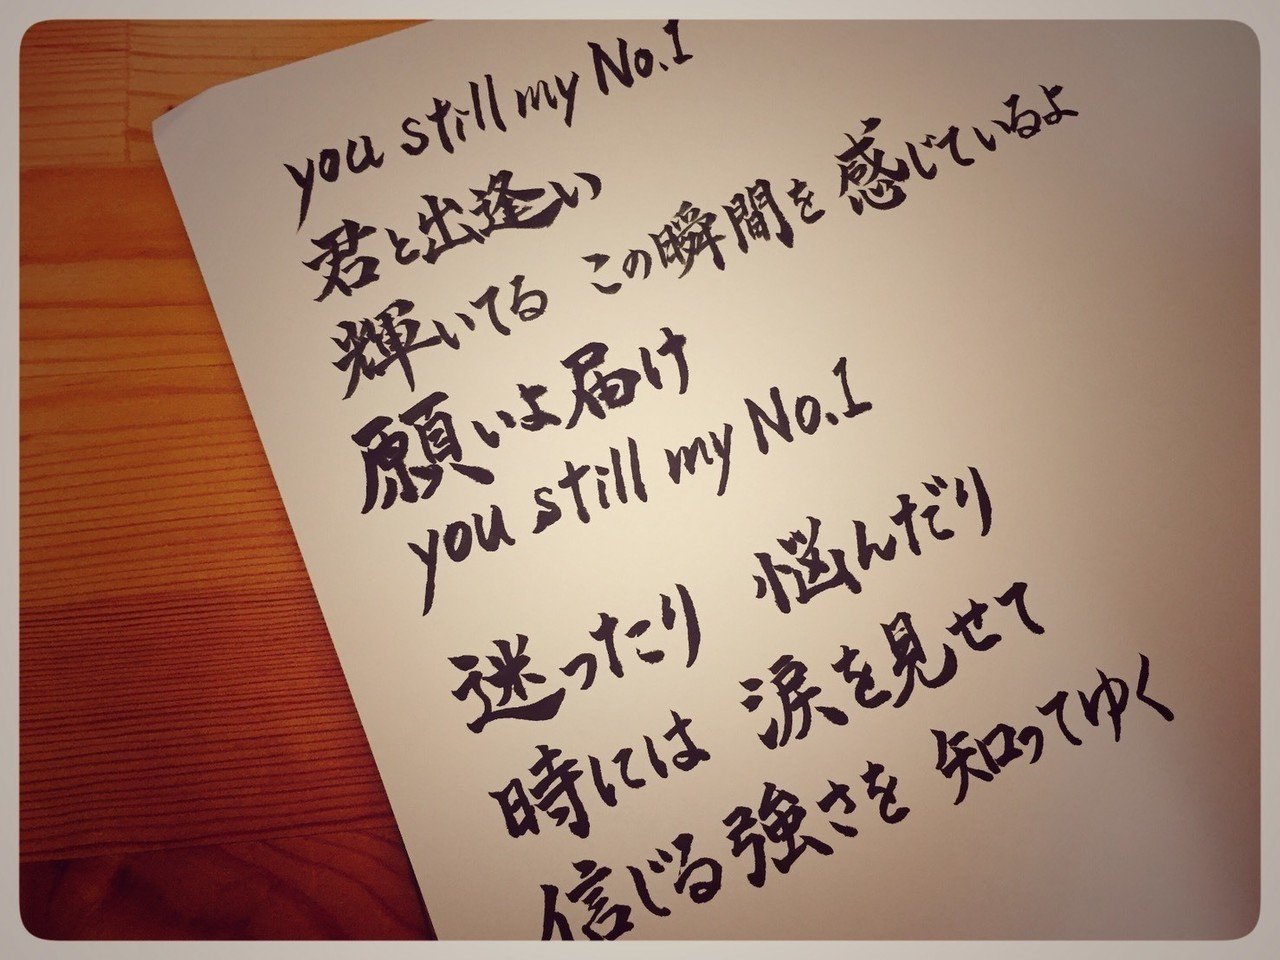 you still my No.1
君と出逢い
輝いてる この瞬間を 感じているよ
願いよ届け
you still my No.1
迷ったり 悩んだり
時には 涙を見せて
信じる強さを 知ってゆく